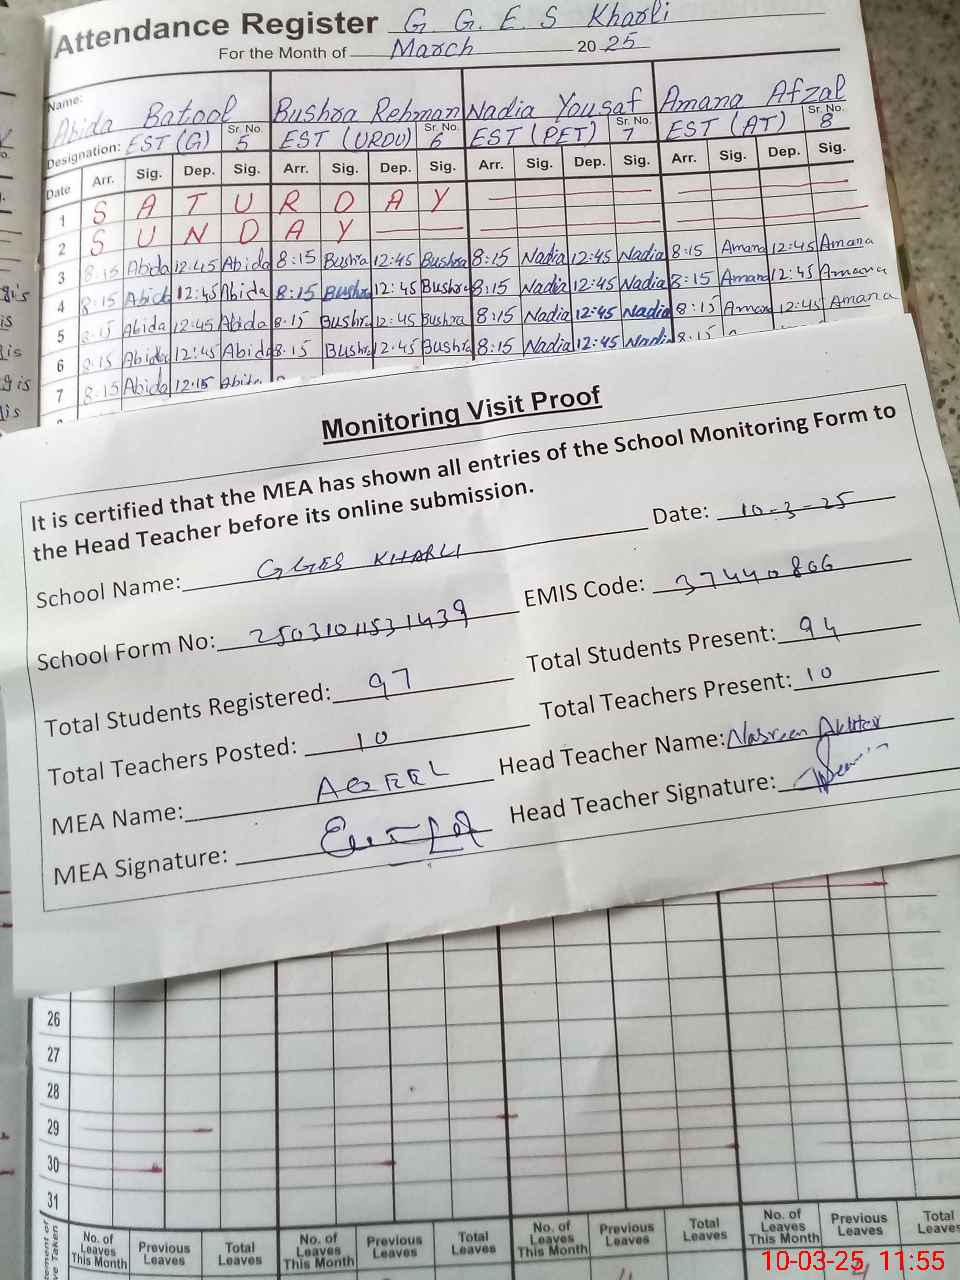 Attendance Register G. G. E. S Kharli
For the Month of March 2025
Name: Abida Batool Bushra Rehman Nadia Yousaf Amana Afzal
Designation: EST (G) Sr. No. 5 EST (URDU) Sr. No. 6 EST (PET) Sr. No. 7 EST (AT) Sr. No. 8
Date Arr. Sig. Dep. Sig. Arr. Sig. Dep. Sig. Arr. Sig. Dep. Sig. Arr. Sig. Dep. Sig.
1 S A T U R D A Y
2 S U N D A Y
3 8:15 Abida 12:45 Abida 8:15 Bushra 12:45 Bushra 8:15 Nadia 12:45 Nadia 8:15 Amana 12:45 Amana
4 8:15 Abida 12:45 Abida 8:15 Bushra 12:45 Bushra 8:15 Nadia 12:45 Nadia 8:15 Amana 12:45 Amana
5 8:15 Abida 12:45 Abida 8:15 Bushra 12:45 Bushra 8:15 Nadia 12:45 Nadia 8:15 Amana 12:45 Amana
6 8:15 Abida 12:45 Abida 8:15 Bushra 12:45 Bushra 8:15 Nadia 12:45 Nadia 8:15
7 8:15 Abida 12:15 Abida
Monitoring Visit Proof
It is certified that the MEA has shown all entries of the School Monitoring Form to
the Head Teacher before its online submission.
School Name: GGES KHARLI Date: 10-3-25
School Form No: 25031011531439 EMIS Code: 37440806
Total Students Registered: 97 Total Students Present: 94
Total Teachers Posted: 10 Total Teachers Present: 10
MEA Name: AQEEL Head Teacher Name: Nasreen Akhter
MEA Signature: Head Teacher Signature:
26
27
28
29
30
31
No. of Leaves This Month Previous Leaves Total Leaves No. of Leaves This Month Previous Leaves Total Leaves No. of Leaves This Month Previous Leaves Total Leaves No. of Leaves This Month Previous Leaves Total Leaves
10-03-25 11:55